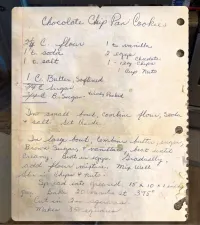 Chocolate Chip Pan Cookies
2¼ C. flour
1 t. soda
1 t. salt
1 t. vanilla
2 eggs
1 - 12oz chocolate chips
1 Cup Nuts
1 C. Butter, Softened
3/4 C Sugar
3/4 C B. Sugar - firmly Packed
In small bowl, combine flour, soda
+ salt. Set Aside.
In large bowl, combine butter, sugar,
Brown Sugar, + vanilla, beat until
creamy. Beat in eggs. Gradually
add flour mixture. Mix Well
Stir in chips + nuts.
Spread into greased 15 x 10 x 1
pan. Bake 20 minutes at 375°
Cut in 2 in squares
Makes 35 squares